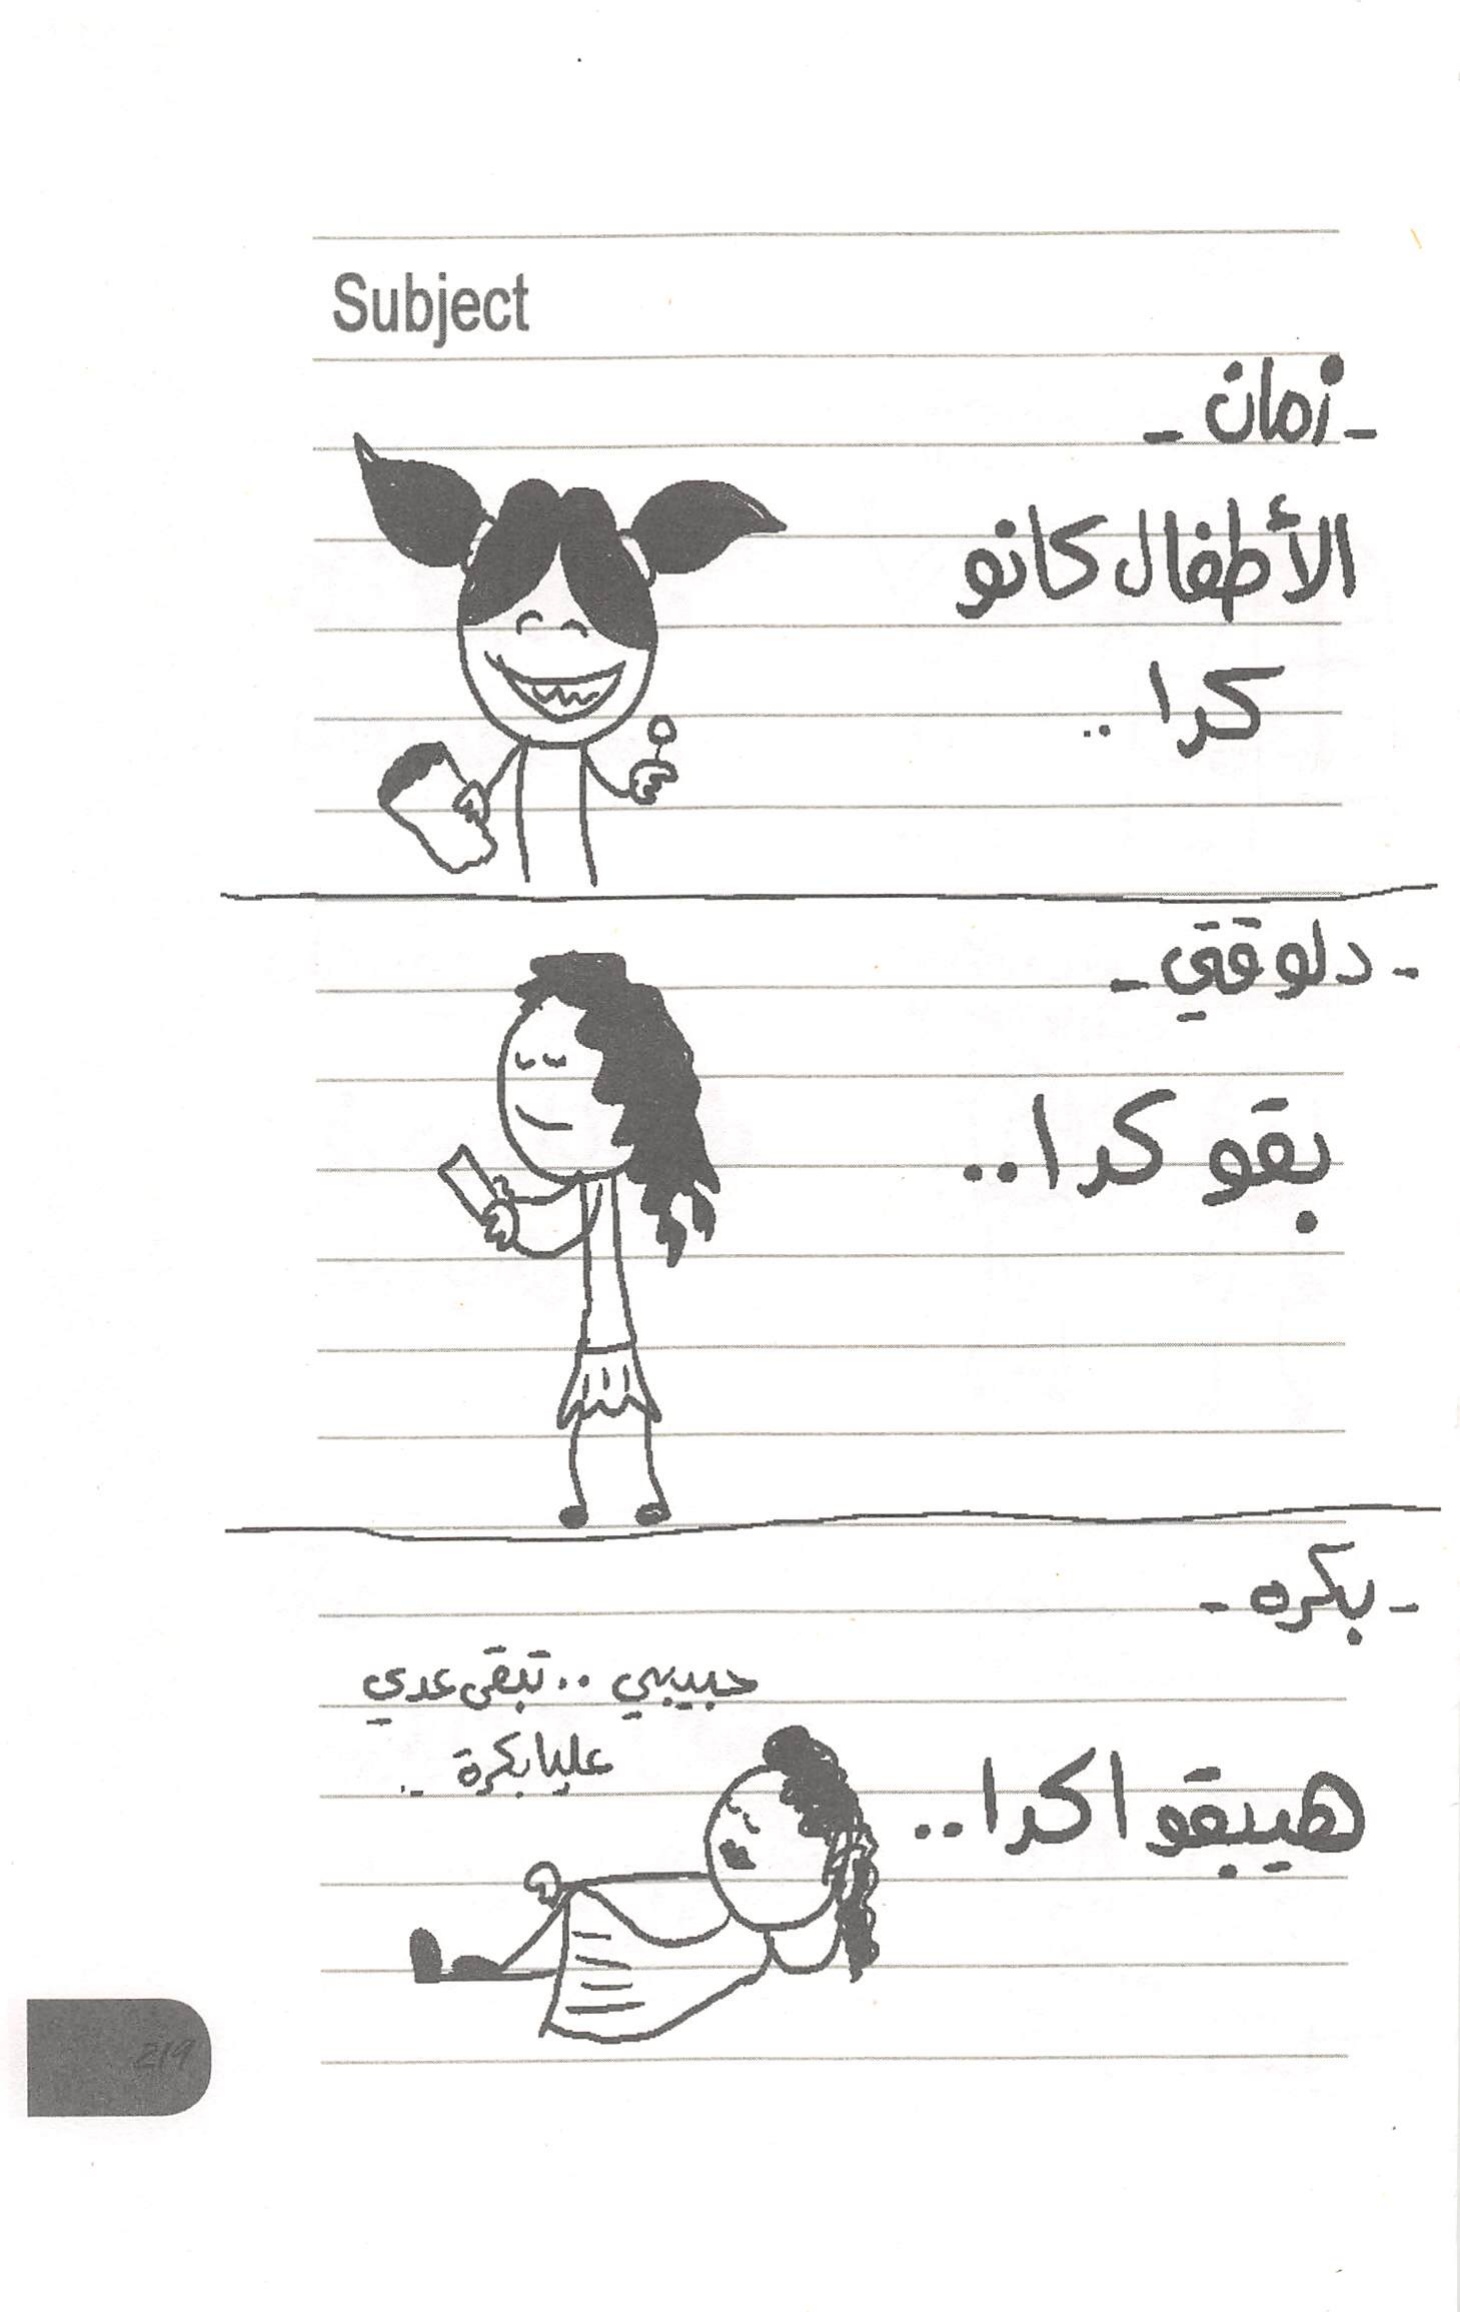 Subject
- زمان -
الأطفال كانو
كدا ..
- دلوقتي -
بقو كدا ..
- بكره -
حبيبي .. تبقى عدي
عليا بكرة ..
هيبقوا كدا ..
219